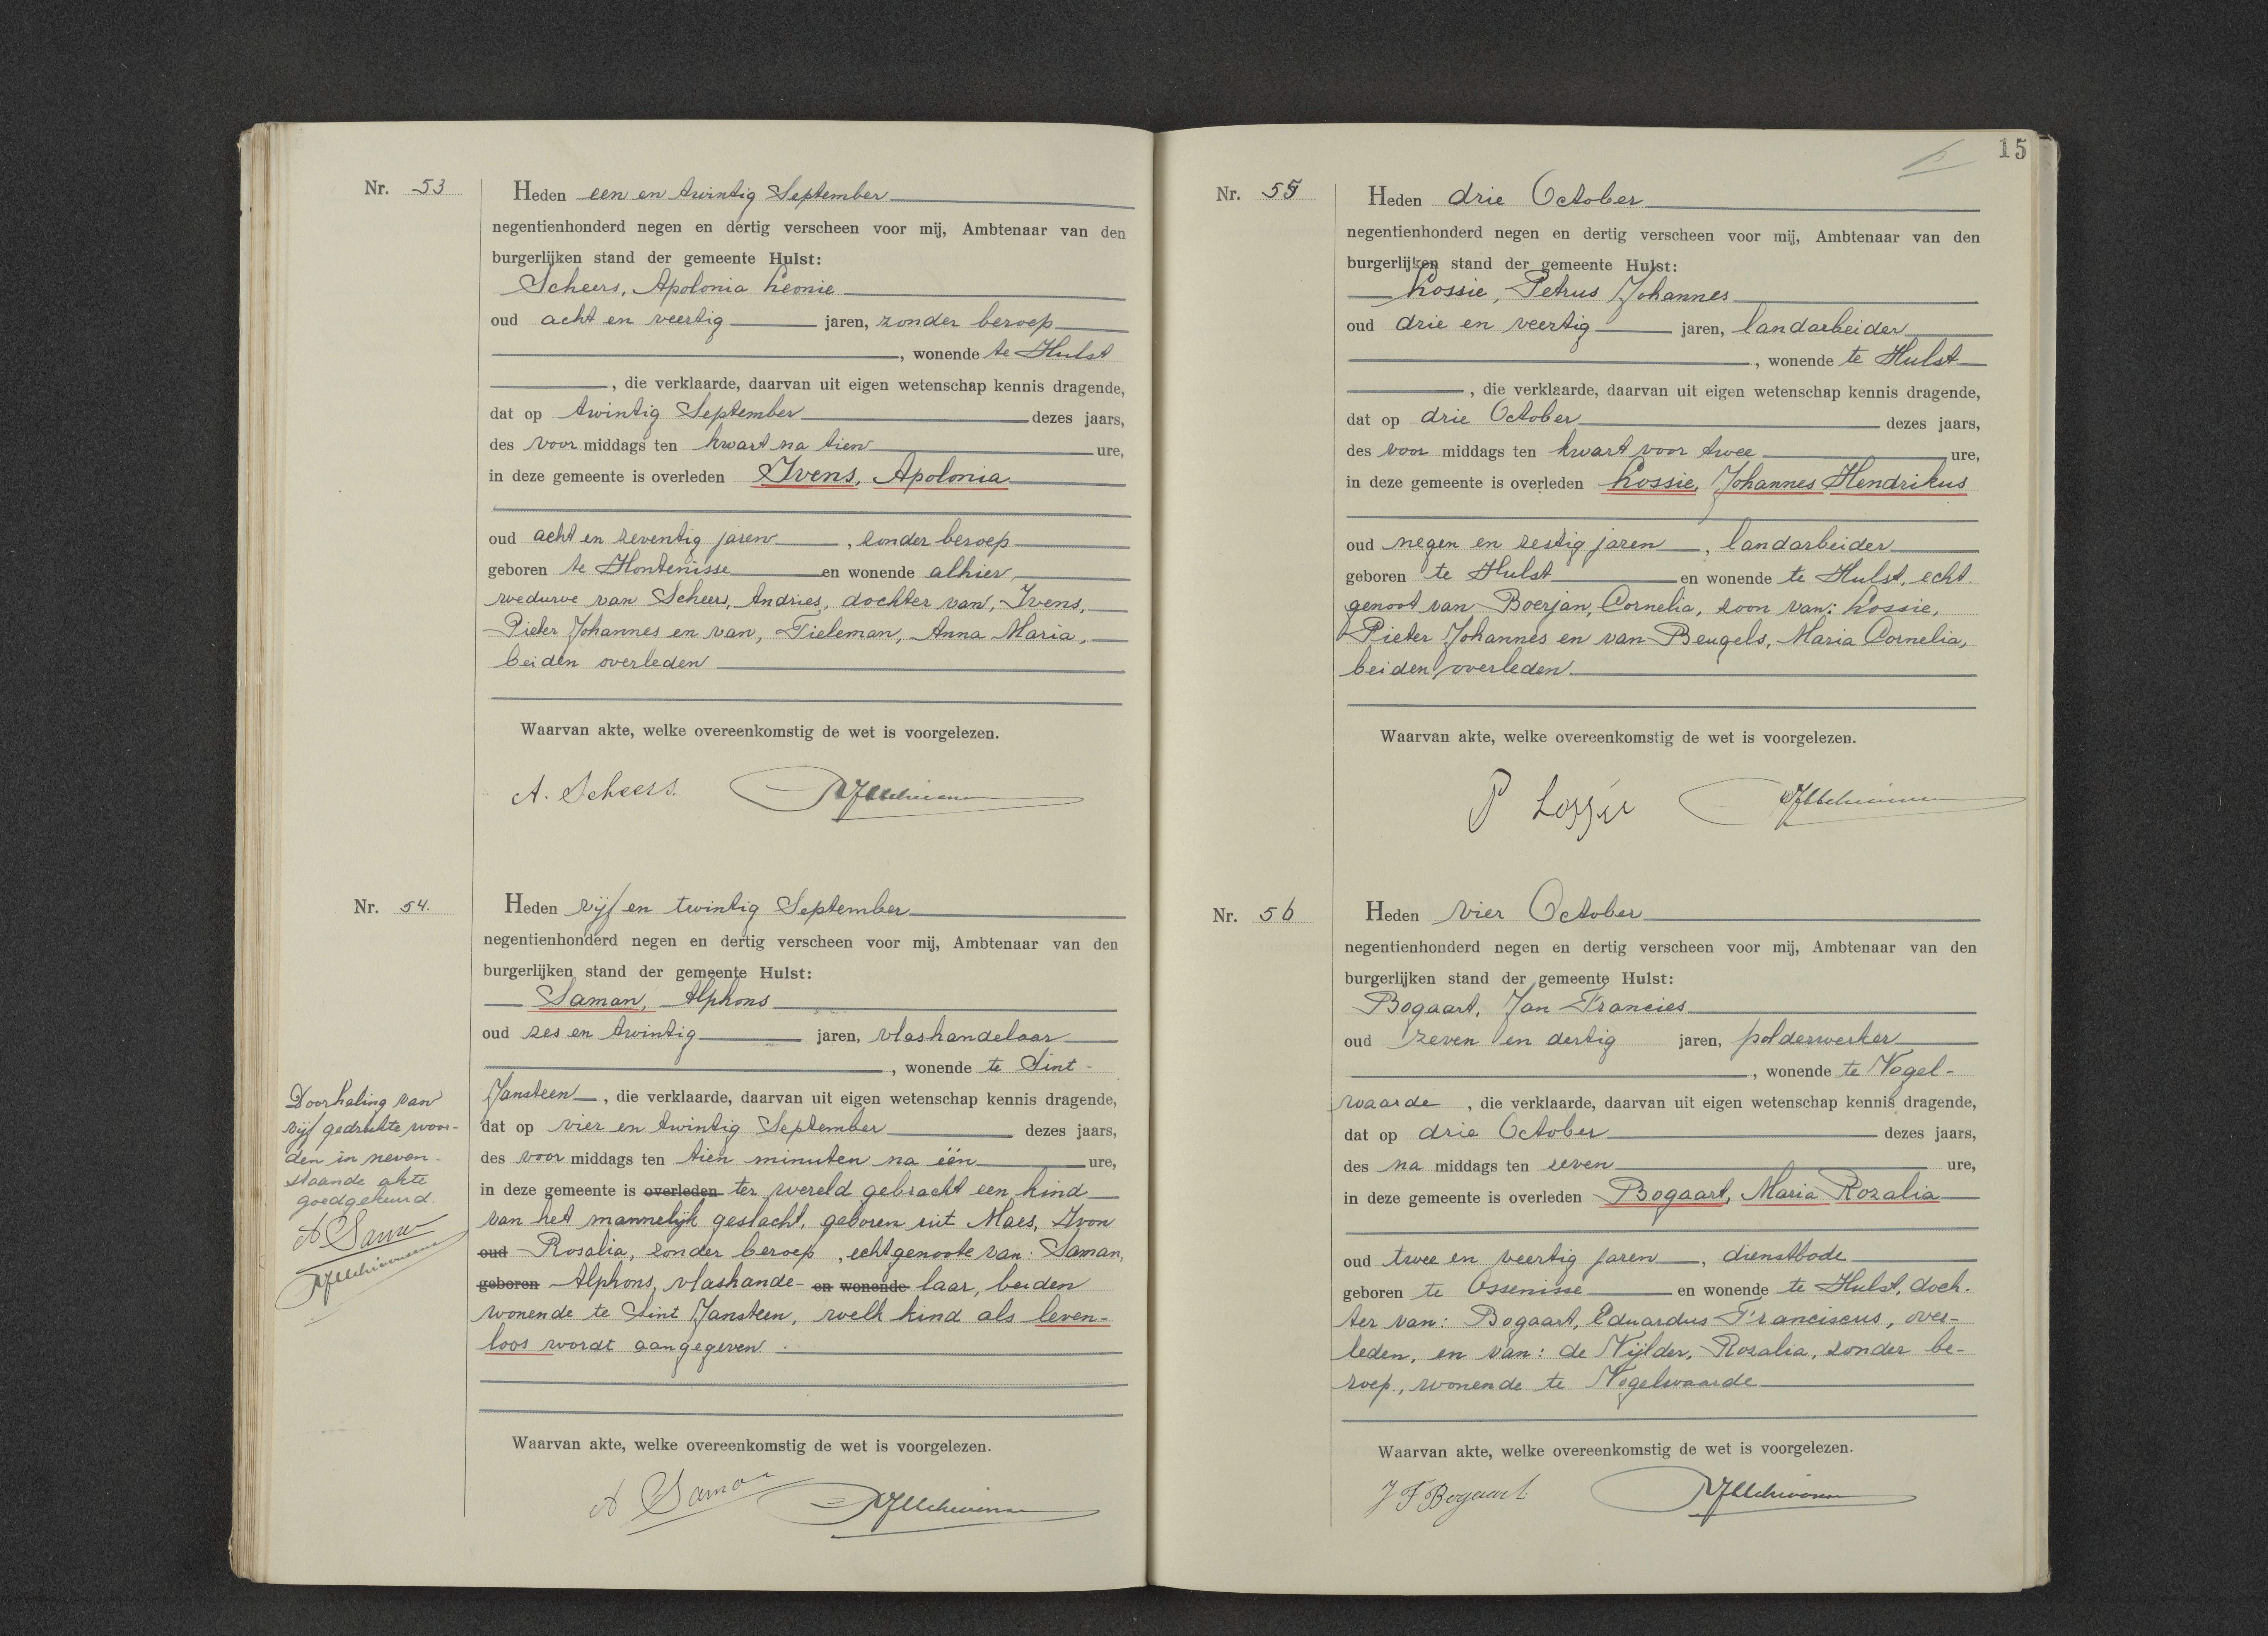 Nr. 53
Heden een en twintig September
negentienhonderd negen en dertig verscheen voor mij, Ambtenaar van den
burgerlijken stand der gemeente Hulst:
Scheers, Apolonia Leonie
oud acht en veertig jaren, zonder beroep
, wonende te Hulst
, die verklaarde, daarvan uit eigen wetenschap kennis dragende,
dat op twintig September dezes jaars,
des voor middags ten kwart na tien ure,
in deze gemeente is overleden Ivens, Apolonia
oud acht en zeventig jaren, zonder beroep
geboren te Hontenisse en wonende alhier,
weduwe van Scheers, Andries, dochter van, Ivens,
Pieter Johannes en van, Tieleman, Anna Maria,
beiden overleden
Waarvan akte, welke overeenkomstig de wet is voorgelezen.
A. Scheers.
Nr. 54.
Heden vijf en twintig September
negentienhonderd negen en dertig verscheen voor mij, Ambtenaar van den
burgerlijken stand der gemeente Hulst:
Saman, Alphons
oud zes en twintig jaren, vlashandelaar
, wonende te Sint-
Jansteen, die verklaarde, daarvan uit eigen wetenschap kennis dragende,
dat op vier en twintig September dezes jaars,
des voor middags ten tien minuten na één ure,
in deze gemeente is overleden ter wereld gebracht een kind
van het mannelijk geslacht, geboren uit Maes, Ivon
oud Rosalia, zonder beroep, echtgenoote van: Saman,
geboren Alphons, vlashande- en wonende laar, beiden
wonende te Sint Jansteen, welk kind als leven-
loos wordt aangegeven.
Doorhaling van
vijf gedrukte woor-
den in neven-
staande akte
goedgekeurd.
A Saman
Waarvan akte, welke overeenkomstig de wet is voorgelezen.
A Saman
15
Nr. 55
Heden drie October
negentienhonderd negen en dertig verscheen voor mij, Ambtenaar van den
burgerlijken stand der gemeente Hulst:
Lossie, Petrus Johannes
oud drie en veertig jaren, landarbeider
, wonende te Hulst
, die verklaarde, daarvan uit eigen wetenschap kennis dragende,
dat op drie October dezes jaars,
des voor middags ten kwart voor twee ure,
in deze gemeente is overleden Lossie, Johannes Hendrikus
oud negen en zestig jaren, landarbeider
geboren te Hulst en wonende te Hulst, echt
genoot van Boerjan, Cornelia, zoon van: Lossie,
Pieter Johannes en van Beugels, Maria Cornelia,
beiden overleden.
Waarvan akte, welke overeenkomstig de wet is voorgelezen.
P Lossie
Nr. 56
Heden vier October
negentienhonderd negen en dertig verscheen voor mij, Ambtenaar van den
burgerlijken stand der gemeente Hulst:
Bogaart, Jan Francies
oud zeven en dertig jaren, polderwerker
, wonende te Vogel-
waarde, die verklaarde, daarvan uit eigen wetenschap kennis dragende,
dat op drie October dezes jaars,
des na middags ten zeven ure,
in deze gemeente is overleden Bogaart, Maria Rozalia
oud twee en veertig jaren, dienstbode
geboren te Ossenisse en wonende te Hulst, doch-
ter van: Bogaart, Eduardus Franciscus, over-
leden, en van: de Nijlder, Rozalia, zonder be-
roep., wonende te Vogelwaarde
Waarvan akte, welke overeenkomstig de wet is voorgelezen.
J F Bogaart